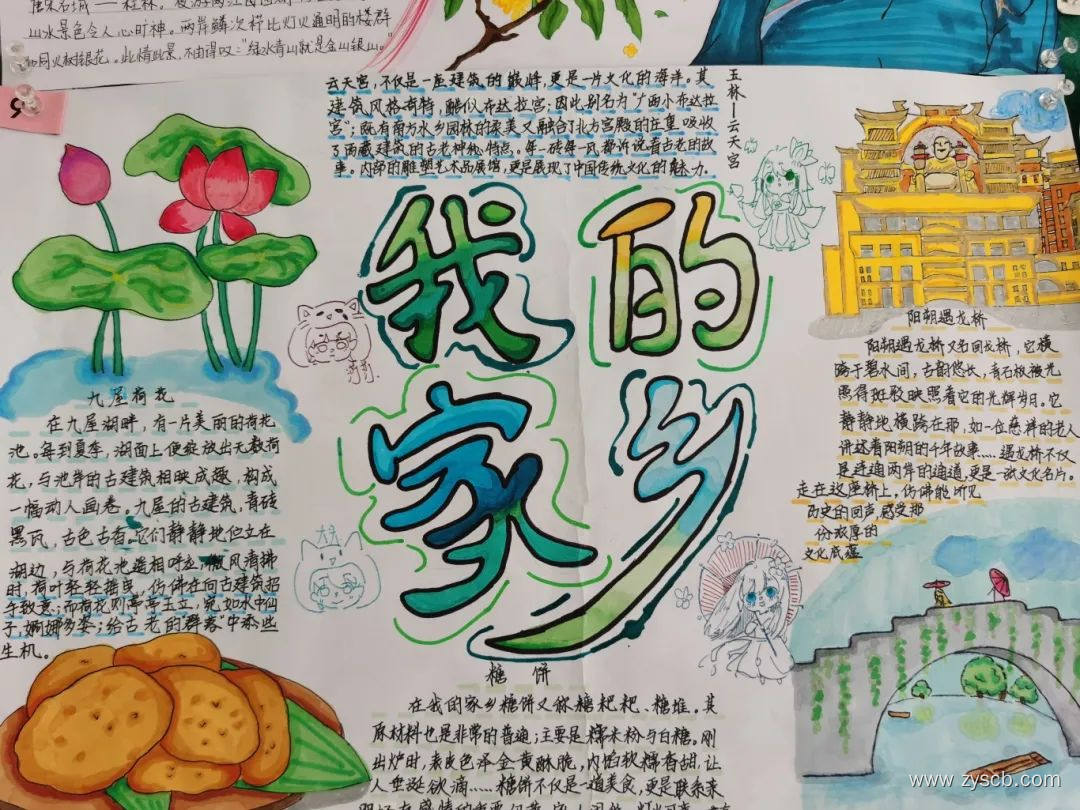 山水景色令人心旷神。两岸鳞次栉比灯火通明的楼群
如同火树银花。此情此景，不由得叹："绿水青山就是金山银山。"
玉林——云天宫
云天宫，不仅是一座建筑的
更是一片文化的海洋。其
建筑风格奇特，酷似布达拉宫；因此别名为"广西小布达拉
宫"；既有南方水乡园林的柔美又融合了北方宫殿的庄重吸收
了西藏建筑的古老神秘特点。每一砖每一瓦都诉说着古老的故
事。内部的雕塑艺术品展馆，更是展现了中国传统文化的魅力。
我的
家乡
九屋荷花
在九屋湖畔，有一片美丽的荷花
池。每到夏季，湖面上便绽放出无数荷
花，与池岸的古建筑相映成趣，构成
一幅动人画卷。九屋的古建筑，青砖
黑瓦，古色古香，它们静静地伫立在
湖边，与荷花池遥相呼应，微风清拂
时，荷叶轻轻摇曳，仿佛在向古建筑招
手致意；而荷花则亭亭玉立，宛如水中仙
子，婀娜多姿；给古老的群落中添些
生机。
阳朔遇龙桥
阳朔遇龙桥又名回龙桥，它横
跨于碧水间，古韵悠长，青石板被光
照得斑驳映照着它的光辉岁月。它
静静地横跨在那，如一位慈祥的老人
讲述着阳朔的千年故事……遇龙桥不仅
是连通两岸的通道，更是一张文化名片。
走在这座桥上，仿佛能听见
历史的回声，感受那
份浓厚的
文化底蕴
糖饼
在我的家乡糖饼又称糖粑粑、糖堆。其
原材料也是非常的普通；主要是糯米粉与白糖。刚
出炉时，表皮色泽金黄酥脆，内馅软糯香甜，让
人垂涎欲滴……糖饼不仅是一道美食，更是联系亲
www.zyscb.com